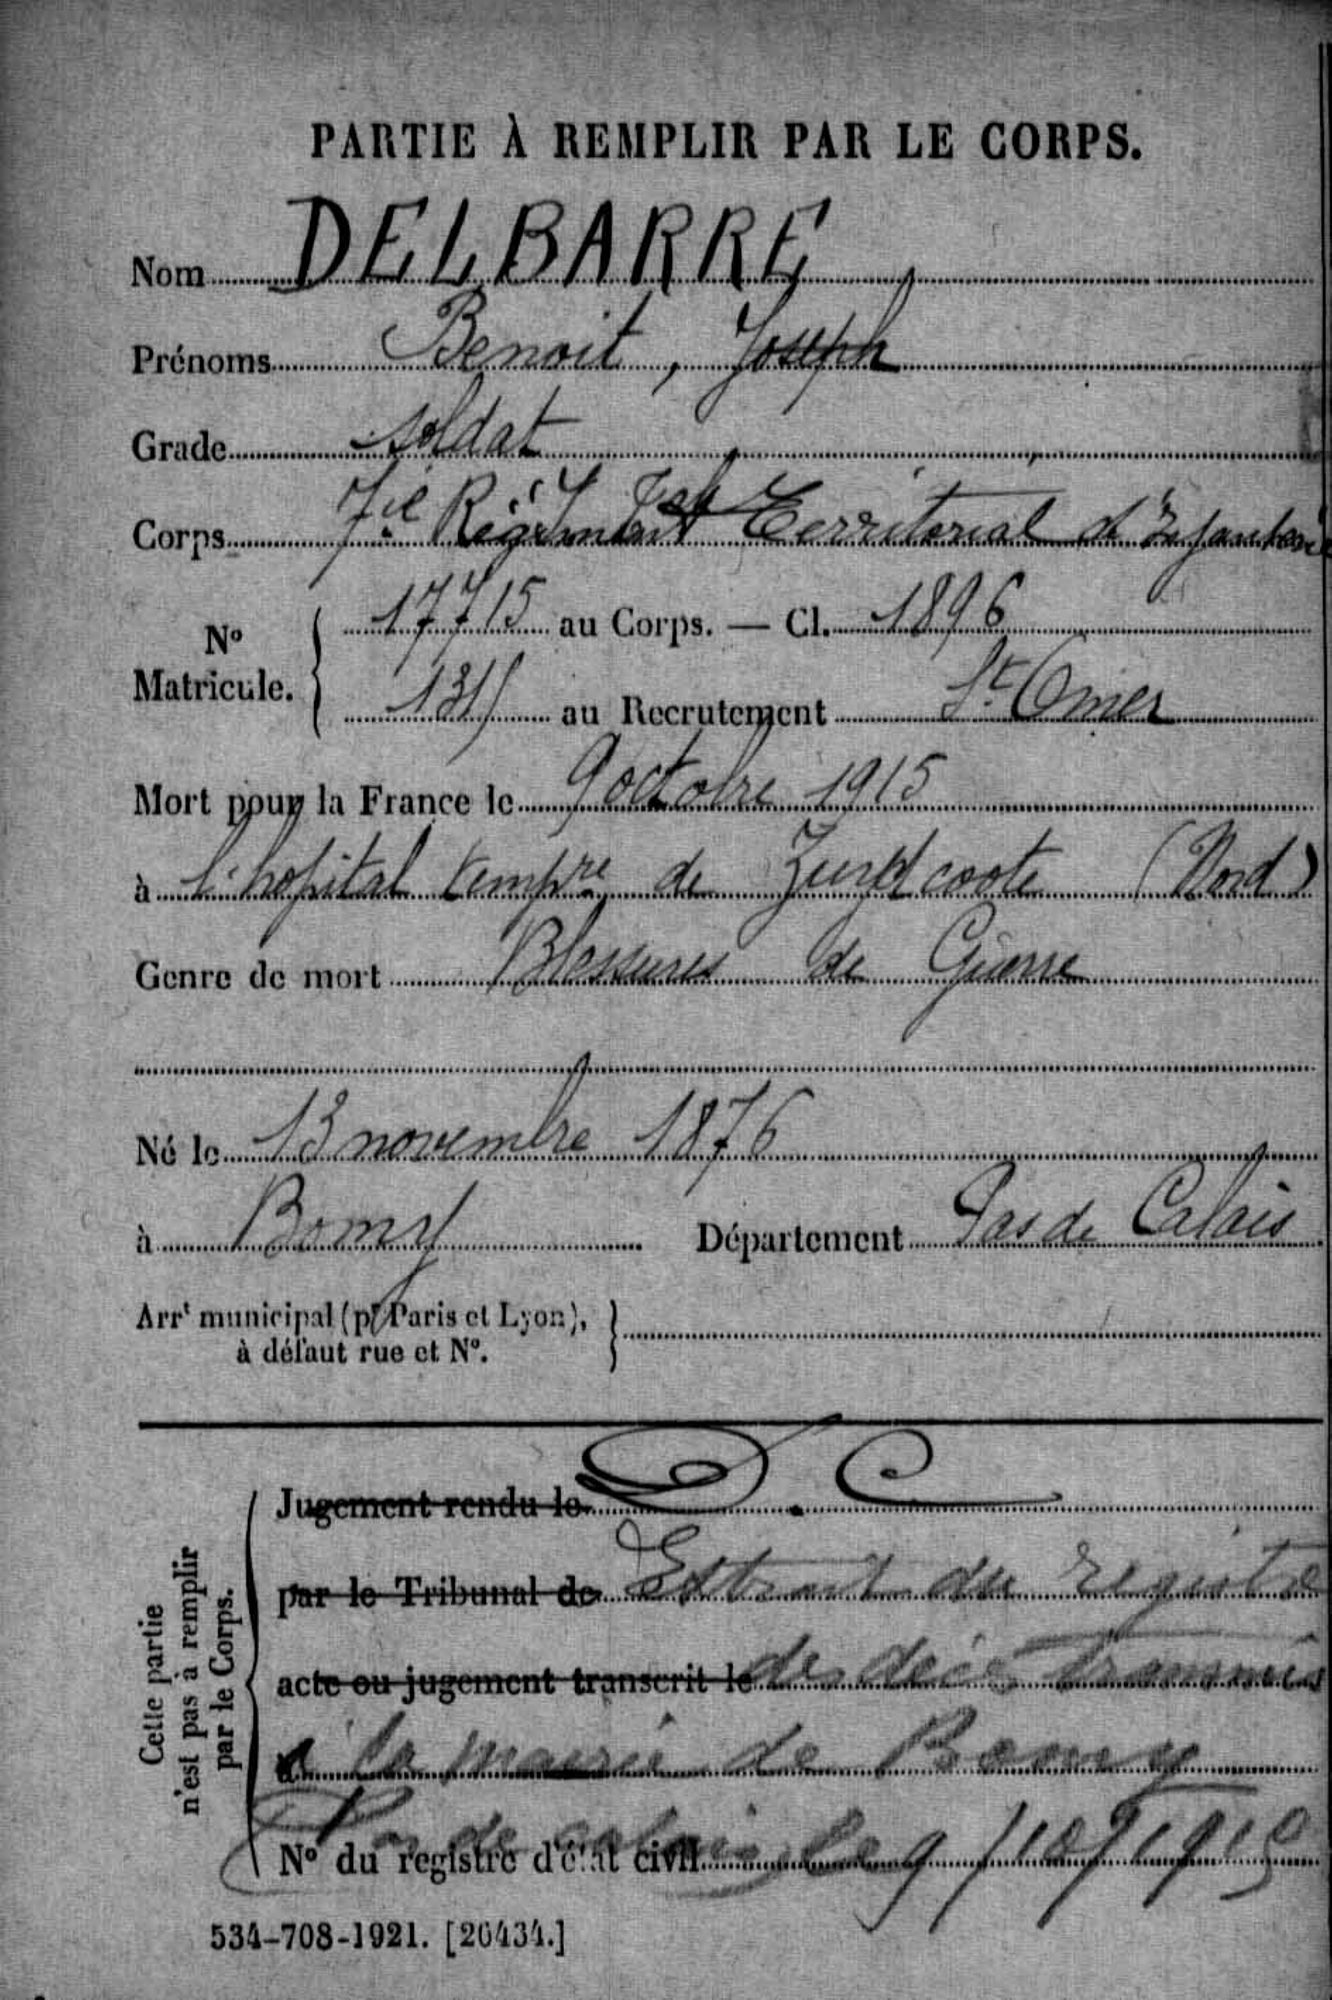 PARTIE À REMPLIR PAR LE CORPS.
Nom DELBARRE
Prénoms Benoit, Joseph
Grade soldat
Corps 7ie Régiment Territorial d'Infanterie
No Matricule. 17715 au Corps. — Cl. 1896
131 au Recrutement St Omer
Mort pour la France le 9 octobre 1915
à l'hopital tempre de Zuydcoote (Nord)
Genre de mort Blessures de Guerre
Né le 13 novembre 1876
à Bomy Département Pas de Calais
Arrt municipal (pr Paris et Lyon),
à défaut rue et No.
Cette partie
n'est pas à remplir
par le Corps.
Jugement rendu le D.C
par le Tribunal de Extrait du registre
acte ou jugement transcrit le de décès transmis
à la mairie de Bomy
Pas de calais le 9/10/1915
No du registre d'état civil
534-708-1921. [26434.]